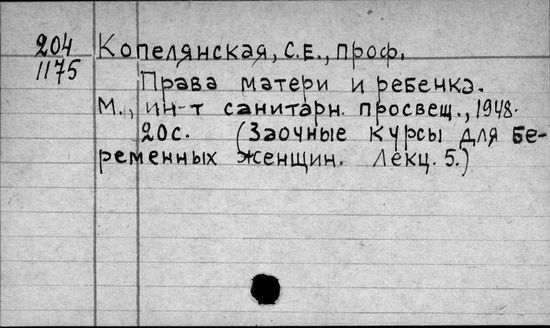 204 Копелянская, С.Е., проф.
1175
Права матери и ребенка.
М., ин-т санитарн. просвещ., 1948.
20с. (Заочные курсы для бе-
ременных женщин. Лекц. 5.)